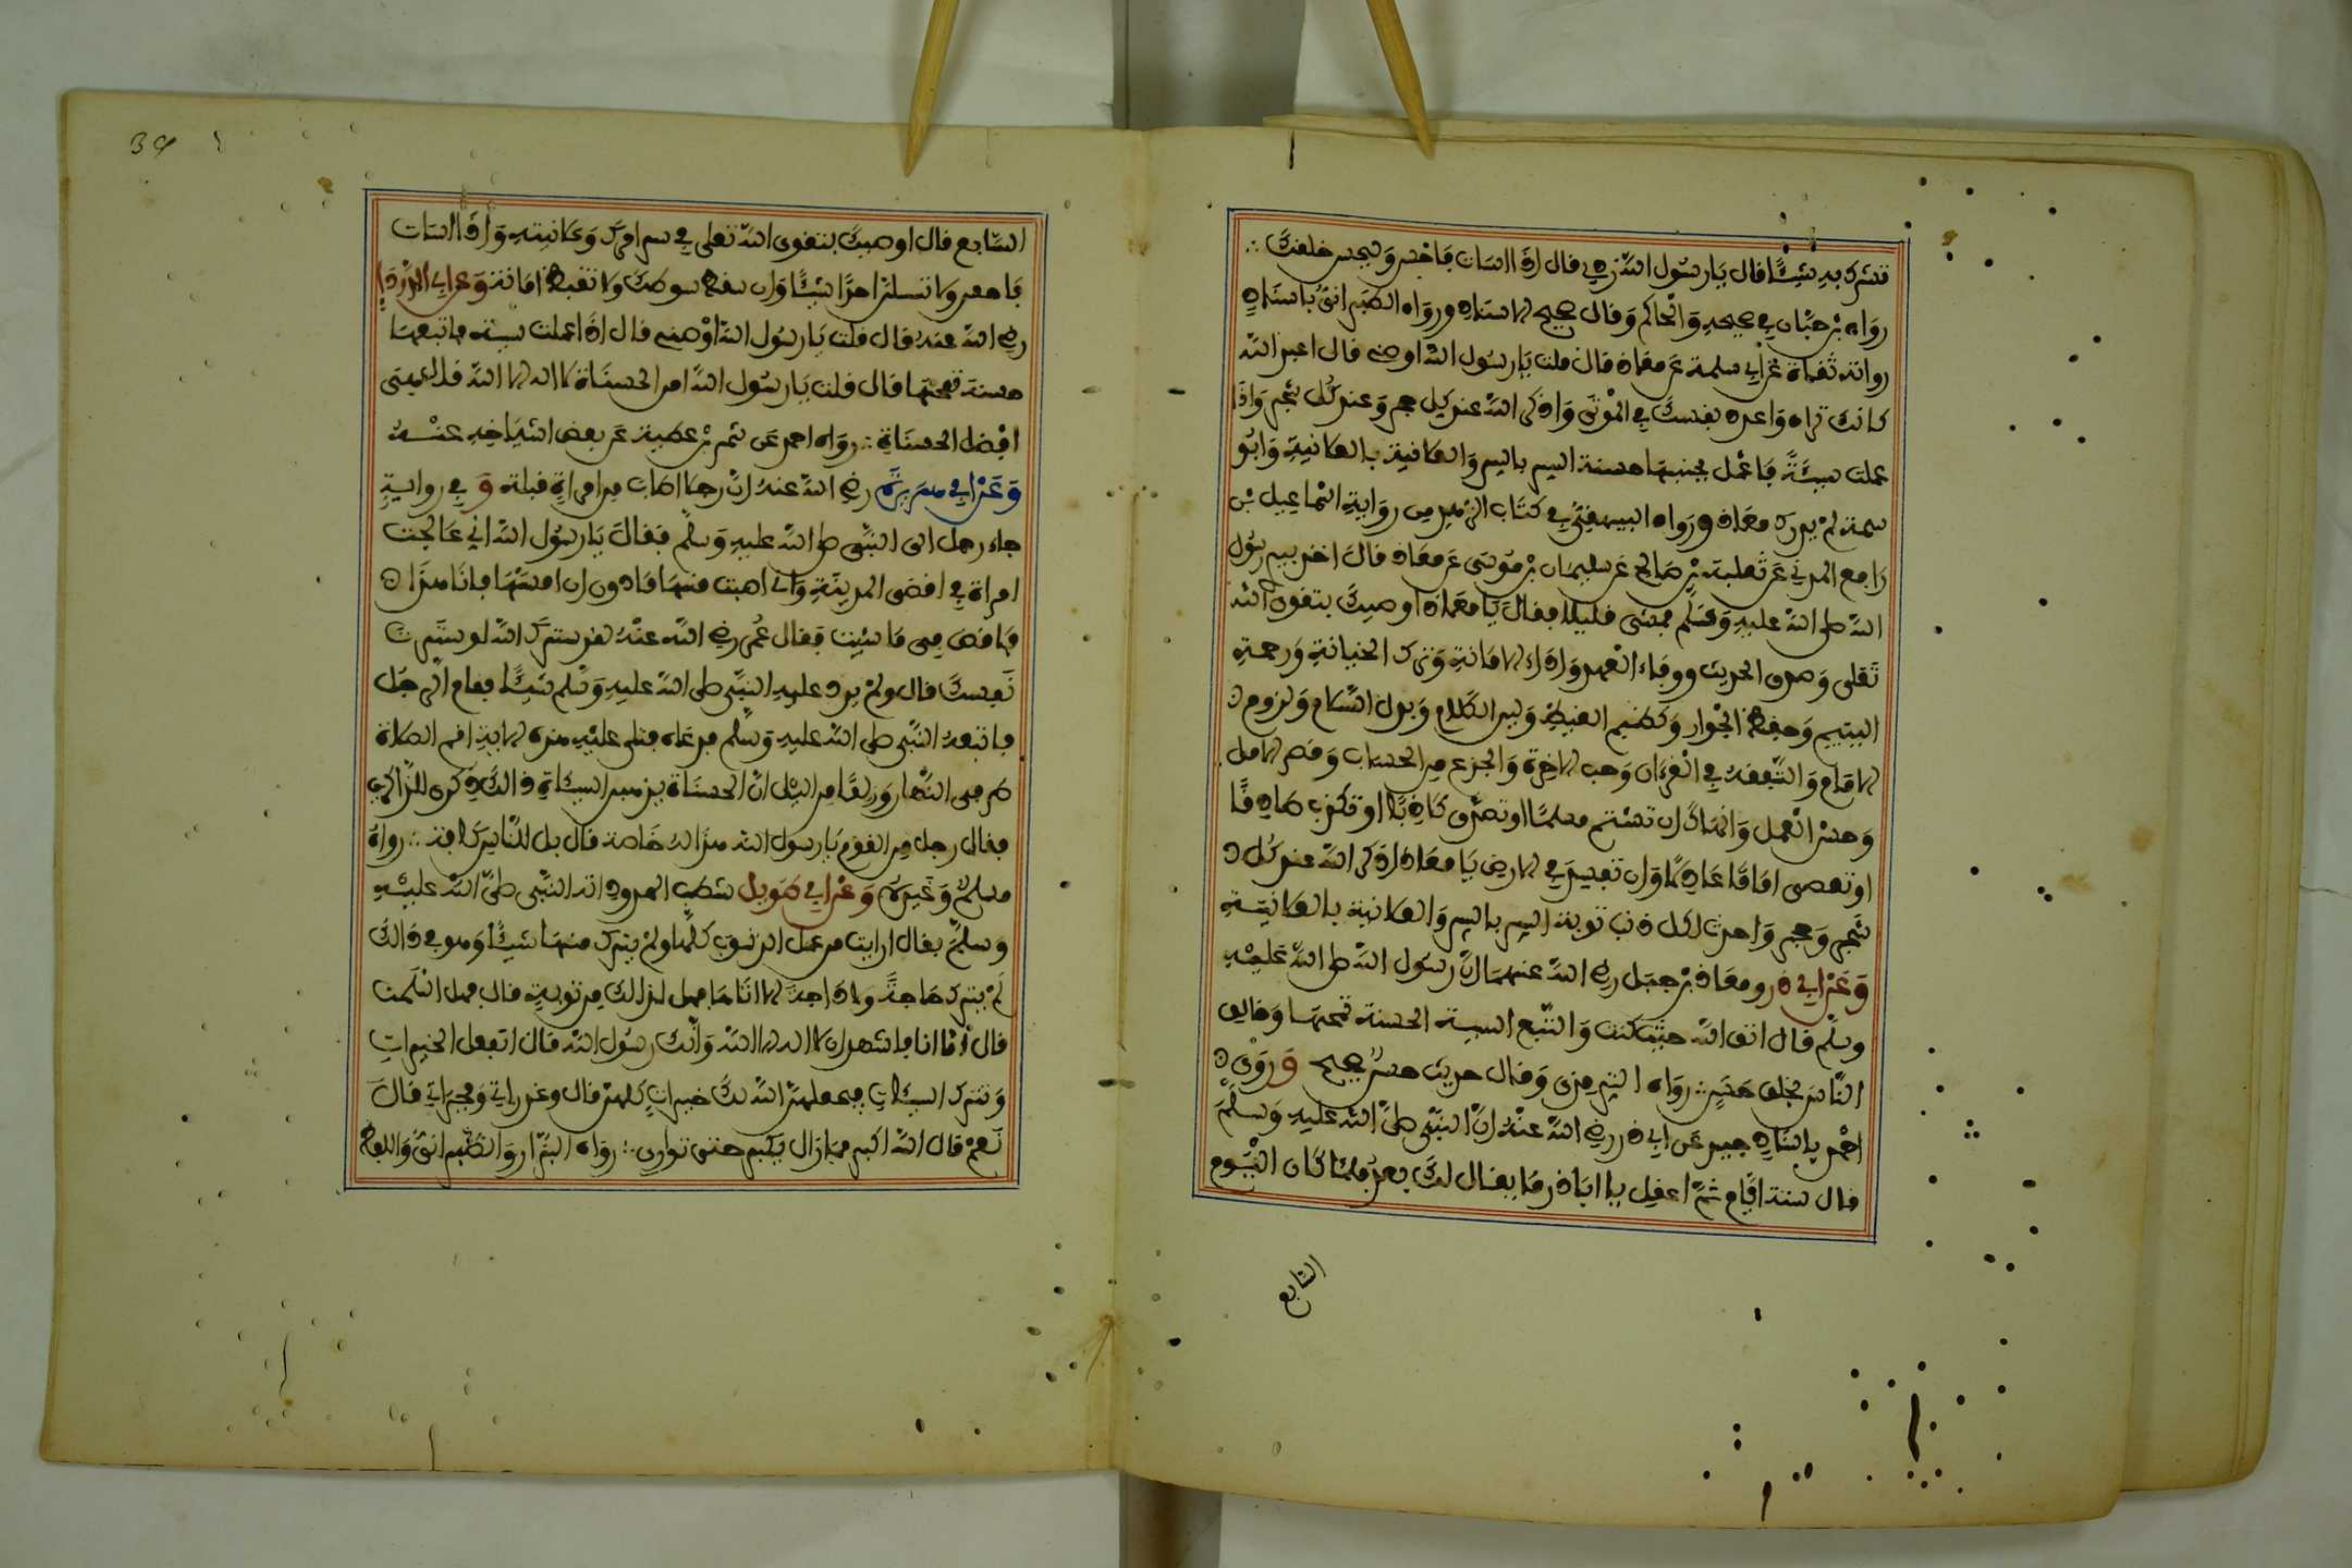 تشرك به شيئا قال يا رسول الله زدني قال اذا اسات فاحسن وليحسن خلقك ∴
رواه بن حبان في صحيحه والحاكم وقال صحيح الاسناد ورواه الطبراني باسناد
رواته ثقاة عن ابي سلمة عن معاذ قال قلت يا رسول الله اوصني قال اعبد الله
كانك تراه واعدد نفسك في الموتى واذكر الله عند كل حجر وعند كل شجر واذا
عملت سيئة فاعمل بجنبها حسنة السر بالسر والعلانية بالعلانية وابو
سلمة لم يدرك معاذ ورواه البيهقي في كتاب الزهد من رواية اسماعيل بن
رافع المدني عن ثعلبة بن صالح عن سليمان بن موسى عن معاذ قال اخذ بيدي رسول
الله صلى الله عليه وسلم فمشى قليلا فقال يا معاذ اوصيك بتقوى الله
تعلى وصدق الحديث ووفاء العهد واداء الامانة وترك الخيانة ورحمة
اليتيم وحفظ الجوار وكظم الغيظ ولين الكلام وبذل السلام ولزوم
الامام والتفقه في القرءان وحب الاخرة والجزع من الحساب وقصر الامل
وحسن العمل وانهاك ان تشتم مسلما او تصدق كاذبا او تكذب صادقا
او تعصي اماما عادلا وان تفسد في الارض يا معاذ اذكر الله عند كل
شجر وحجر واحدث لكل ذنب توبة السر بالسر والعلانية بالعلانية
وعن ابي ذر ومعاذ بن جبل رضي الله عنهما ان رسول الله صلى الله عليه
وسلم قال اتق الله حيثما كنت واتبع السيئة الحسنة تمحها وخالق
الناس بخلق حسن ∴ رواه الترمذي وقال حديث حسن صحيح وروى
احمد باسناد جيد عن ابي ذر رضي الله عنه ان النبي صلى الله عليه وسلم
قال ستة ايام ثم اعقل يا ابا ذر ما يقال لك بعد فلما كان اليوم
السابع
السابع قال اوصيك بتقوى الله تعلى في سر امرك وعلانيته واذا اسات
فاحسن ولا تسئلن احدا شيئا وان سقط سوطك ولا تقبض امانة وعن ابي الدرداء
رضي الله عنه قال قلت يا رسول الله اوصني قال اذا عملت سيئة فاتبعها
حسنة تمحها قال قلت يا رسول الله امن الحسناة لا اله الا الله قال هي
افضل الحسناة ∴ رواه احمد عن شمر بن عطية عن بعض اشياخه عنه
وعن ابي هريرة رضي الله عنه ان رجلا اصاب من امراة قبلة و في رواية
جاء رجل الى النبي صلى الله عليه وسلم فقال يا رسول الله اني عالجت
امراة في اقصى المدينة واني اصبت منها ما دون ان امسها فانا هذا
فاقض في ما شئت فقال عمر رضي الله عنه لقد سترك الله لو سترت
نفسك قال ولم يرد عليه النبي صلى الله عليه وسلم شيئا فقام الرجل
فاتبعه النبي صلى الله عليه وسلم فدعاه فتلى عليه هذه الاية اقم الصلاة
طرفي النهار وزلفا من اليل ان الحسناة يذهبن السيئاة ذالك ذكرى للذاكرين
فقال رجل من القوم يا رسول الله هذا له خاصة قال بل للناس كافة ∴ رواه
مسلم وغيره وعن ابي طويل شطب الممدود انه اتى النبي صلى الله عليه
وسلم فقال ارايت من عمل الذنوب كلها ولم يترك منها شيئا وهو في ذالك
لم يترك حاجة ولا داجة الا اتاها فهل لذالك من توبة قال فهل اسلمت
قال اما انا فاشهد ان لا اله الا الله وانك رسول الله قال تفعل الخيرات
وتترك السيئات فيجعلهن الله لك خيرات كلهن قال وغدراتي وفجراتي قال
نعم قال الله اكبر فما زال يكبر حتى توارى ∴ رواه البزار والطبراني واللفظ